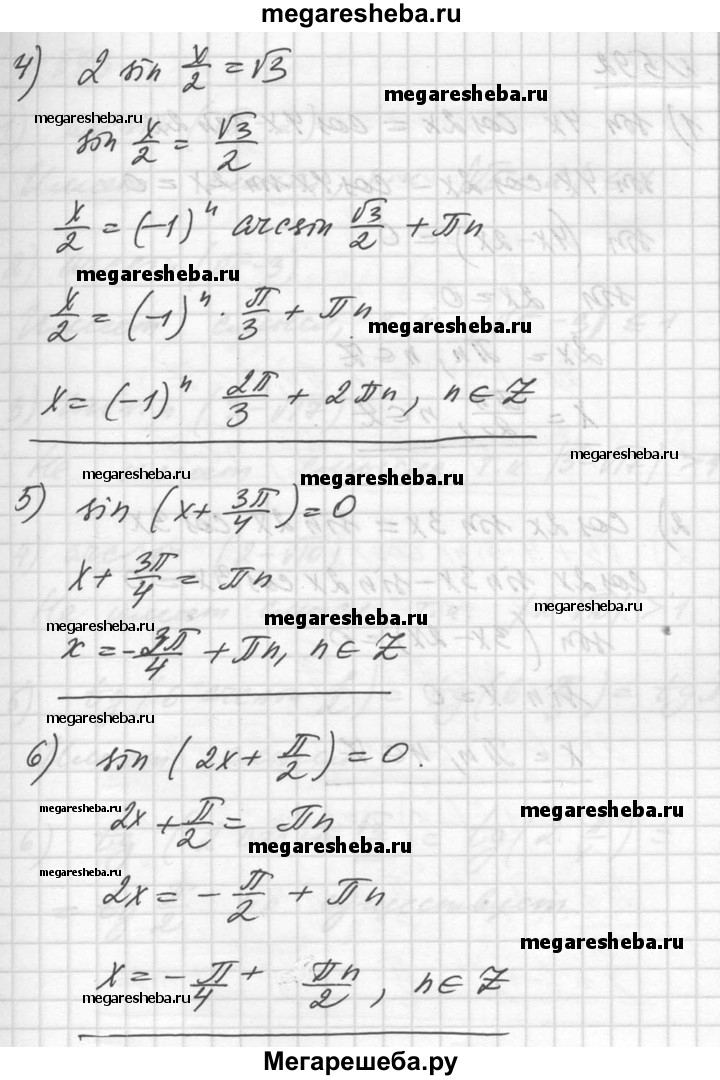 megaresheba.ru
4) 2 sin x/2 = √3
megaresheba.ru
megaresheba.ru
sin x/2 = √3/2
x/2 = (-1)^n arcsin √3/2 + πn
megaresheba.ru
x/2 = (-1)^n · π/3 + πn
megaresheba.ru
x = (-1)^n 2π/3 + 2πn, n ∈ Z
megaresheba.ru
megaresheba.ru
megaresheba.ru
5) sin (x + 3π/4) = 0
x + 3π/4 = πn
megaresheba.ru
megaresheba.ru
x = -3π/4 + πn, n ∈ Z
megaresheba.ru
6) sin (2x + π/2) = 0.
megaresheba.ru
megaresheba.ru
2x + π/2 = πn
megaresheba.ru
megaresheba.ru
2x = -π/2 + πn
megaresheba.ru
x = -π/4 + πn/2, n ∈ Z
megaresheba.ru
megaresheba.ru
Мегарешеба.ру